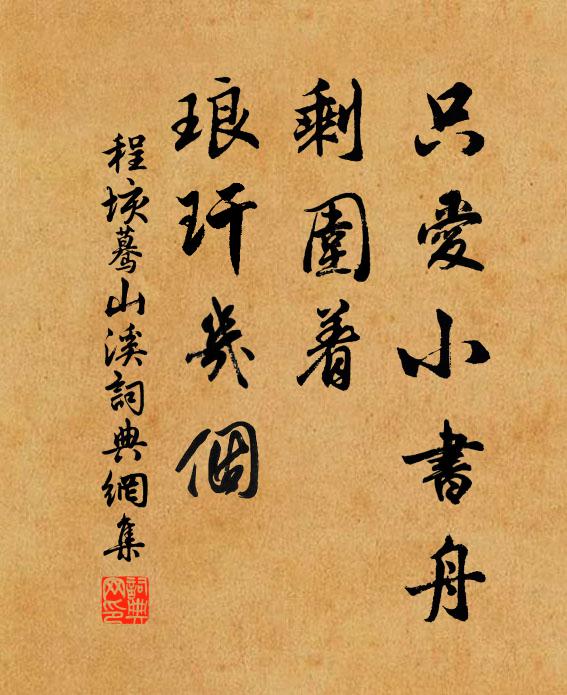 只愛小書舟
剩圍著
琅玕幾個
程垓驀山溪詞典網集
詞典網印